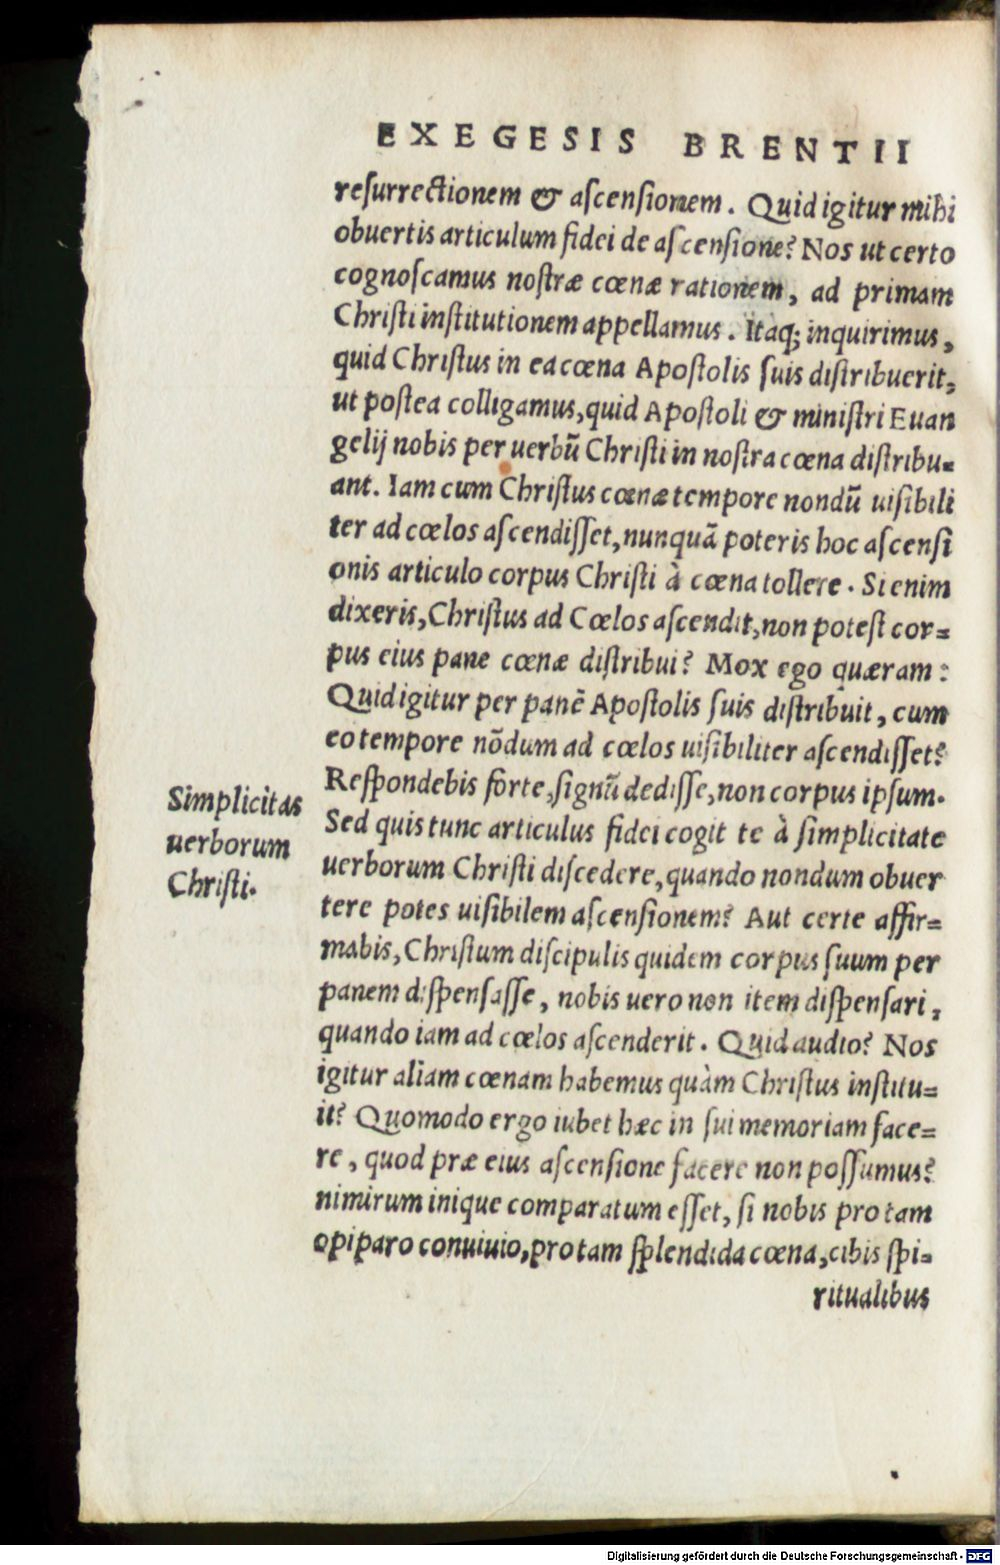 EXEGESIS BRENTII
resurrectionem & ascensionem. Quid igitur mihi
obuertis articulum fidei de ascensione? Nos ut certo
cognoscamus nostræ cœnæ rationem, ad primam
Christi institutionem appellamus. Itaq; inquirimus,
quid Christus in ea cœna Apostolis suis distribuerit,
ut postea colligamus, quid Apostoli & ministri Euan
gelij nobis per uerbũ Christi in nostra cœna distribu-
ant. Iam cum Christus cœnæ tempore nondũ uisibili
ter ad cœlos ascendisset, nunquã poteris hoc ascensi
onis articulo corpus Christi à cœna tollere. Si enim
dixeris, Christus ad Cœlos ascendit, non potest cor-
pus eius pane cœnæ distribui? Mox ego quæram:
Quid igitur per panẽ Apostolis suis distribuit, cum
eo tempore nõdum ad cœlos uisibiliter ascendisset?
Respondebis forte, signũ dedisse, non corpus ipsum.
Sed quis tunc articulus fidei cogit te à simplicitate
uerborum Christi discedere, quando nondum obuer
tere potes uisibilem ascensionem? Aut certe affir-
mabis, Christum discipulis quidem corpus suum per
panem dispensasse, nobis uero non item dispensari,
quando iam ad cœlos ascenderit. Quid audio? Nos
igitur aliam cœnam habemus quàm Christus institu-
it? Quomodo ergo iubet hæc in sui memoriam face-
re, quod præ eius ascensione facere non possumus?
nimirum inique comparatum esset, si nobis pro tam
opiparo conuiuio, pro tam splendida cœna, cibis spi-
ritualibus
Simplicitas
uerborum
Christi.
Digitalisierung gefördert durch die Deutsche Forschungsgemeinschaft - DFG